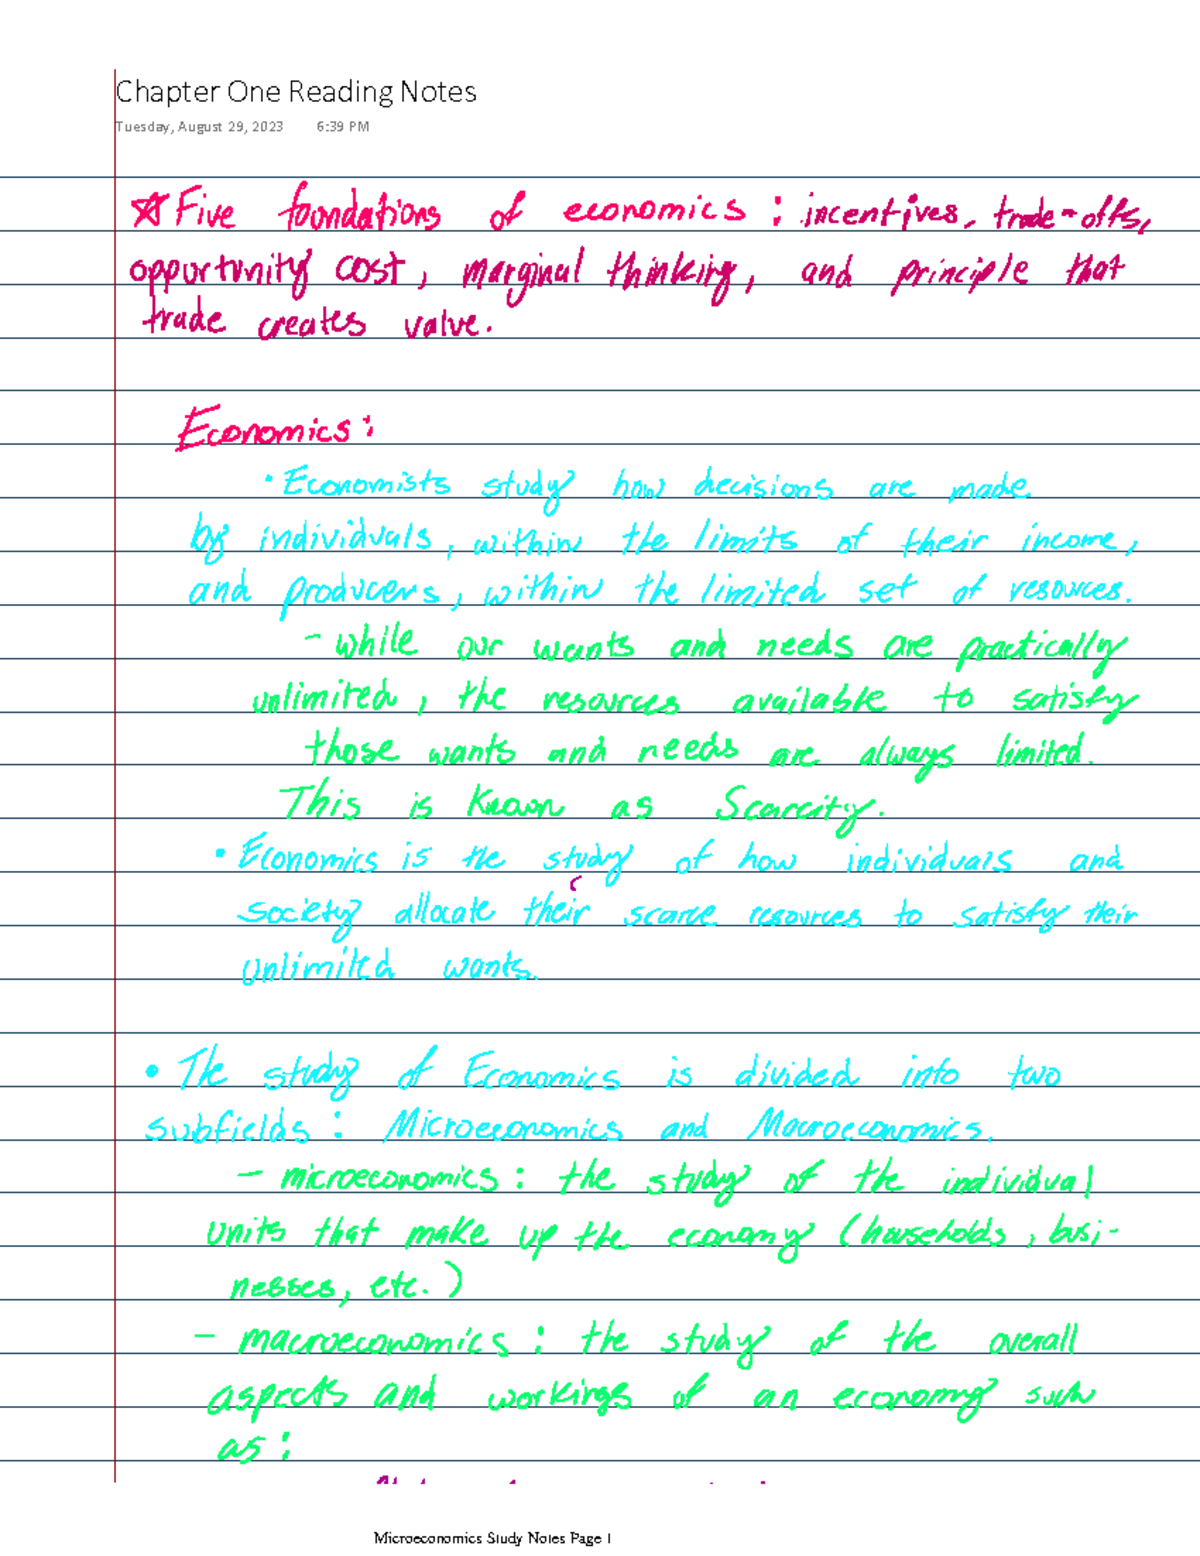 Chapter One Reading Notes
Tuesday, August 29, 2023 6:39 PM
☆ Five foundations of economics : incentives, trade-offs,
opportunity cost, marginal thinking, and principle that
trade creates value.
Economics:
• Economists study how decisions are made
by individuals, within the limits of their income,
and producers, within the limited set of resources.
- while our wants and needs are practically
unlimited, the resources available to satisfy
those wants and needs are always limited.
This is known as Scarcity.
• Economics is the study of how individuals and
society allocate their scarce resources to satisfy their
unlimited wants.
• The study of Economics is divided into two
subfields: Microeconomics and Macroeconomics.
- microeconomics: the study of the individual
units that make up the economy (households, busi-
nesses, etc.)
- macroeconomics: the study of the overall
aspects and workings of an economy such
as:
Microeconomics Study Notes Page 1